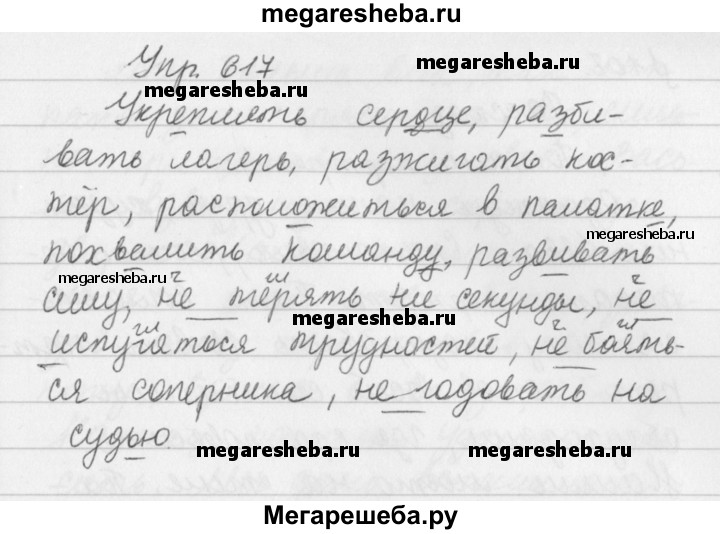 megaresheba.ru
Упр. 617
megaresheba.ru
Укреплять сердце, разби-
вать лагерь, разжигать кос-
тёр, расположиться в палатке,
megaresheba.ru
похвалить команду, развивать
megaresheba.ru
ч ш ч
силу, не терять ни секунды, не
megaresheba.ru
ш ч ш
испугаться трудностей, не боять-
ся соперника, не годовать на
судью.
megaresheba.ru megaresheba.ru
Мегарешеба.ру